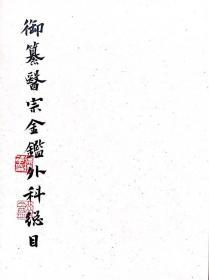 御纂醫宗金鑑外科總目